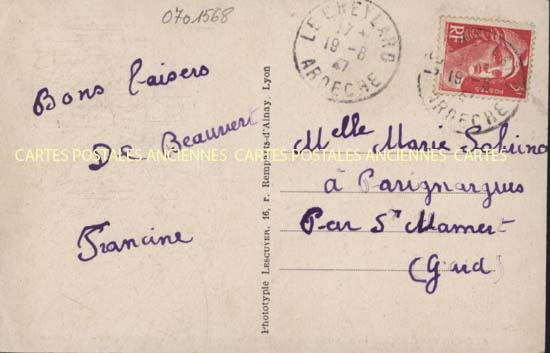 0701568
Bons baisers
De Beauvert
Francine
Phototypie LESCUYER, 16, r. Remparts-d'Ainay, Lyon
LE CHEYLARD
17
19-8
47
ARDECHE
RF
POSTES
ARDECHE
Melle Marie
à Parignargues
Par St Mamert
(Gard)
CARTES POSTALES ANCIENNES CARTES POSTALES ANCIENNES CARTES POSTALES ANCIENNES